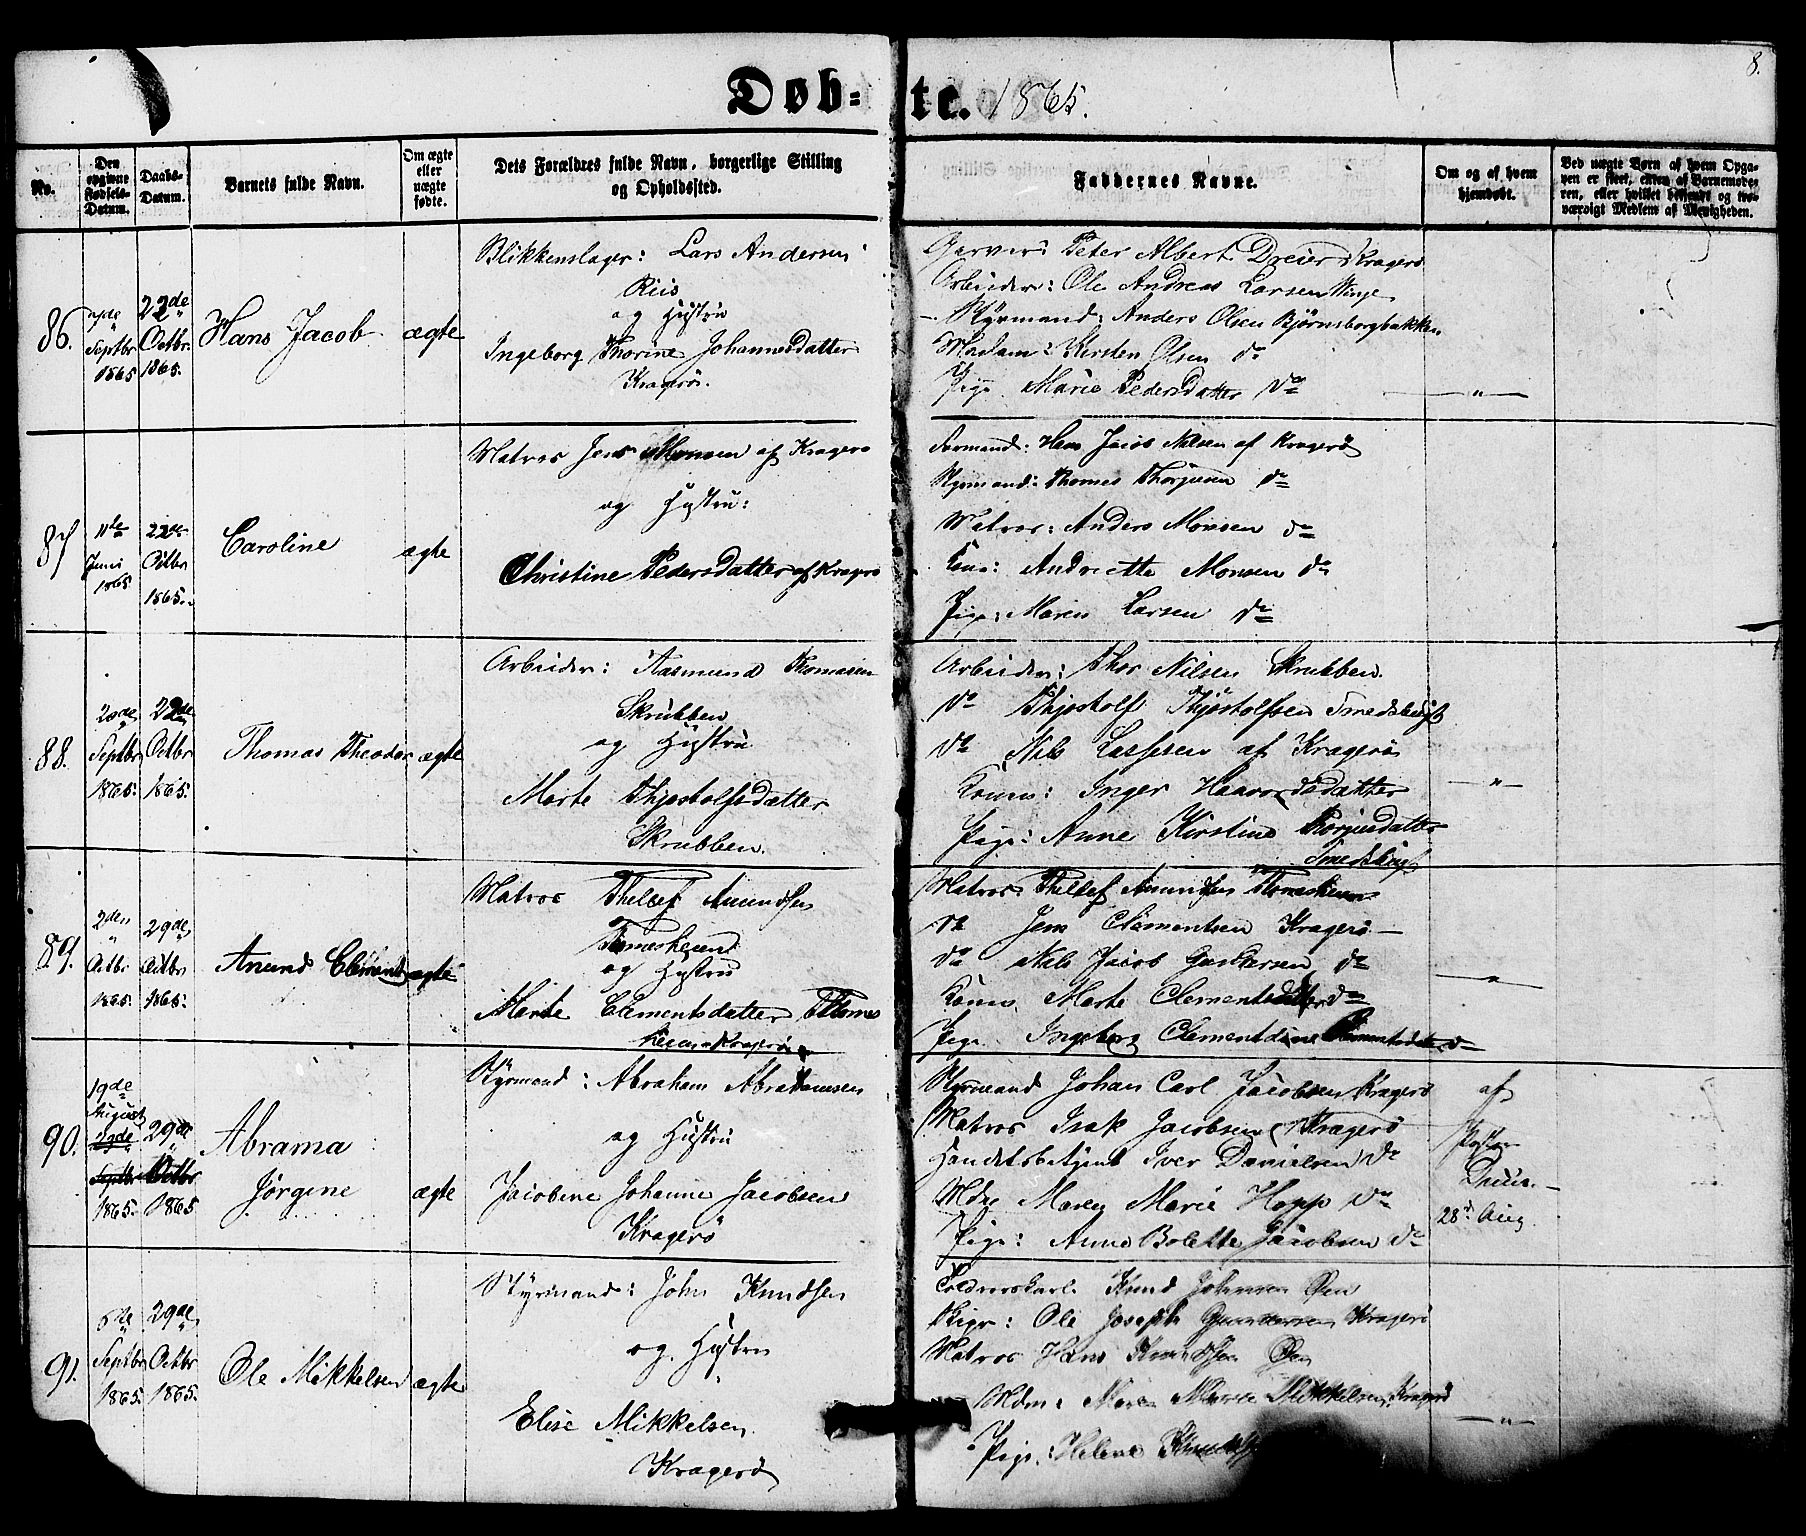 8.
Døb=te. 1865.
No.
Den opgivne Fødsels-Datum.
Daabs-Datum.
Barnets fulde Navn.
Om ægte eller uægte fødte.
Dets Forældres fulde Navn, borgerlige Stilling og Opholdssted.
Faddernes Navne.
Om og af hvem hjemdøbt.
Ved uægte Børn af hvem Opga-
ven er skeet, enten af Barnemode-
ren, eller hvilket bekjendt og tro-
værdigt Medlem af Menigheden.
86.
Septbr 1865
22de Octbr. 1865.
Hans Jacob
ægte
Blikkenslager: Lars Andersen
Riis
og Hustru
Ingeborg Thorine Johannesdatter
Kragerö.
Garver: Peter Albert Dreier Kragerö
Arbeider: Ole Andreas Larsen
Styrmand: Anders Olsen Bjørnsborgbakken
Madam: Kirsten Olsen do
Pige Marie Pedersdatter do
"
87
11te Juni 1865
22de Octbr 1865.
Caroline
ægte
Matros Jens Monsen af Kragerö
og Hustru:
Christine Pedersdatter af Kragerö
Formand: Hans Jacob Nilsen af Kragerö
Styrmand: Thomas do
Matros: Anders Monsen do
Kone: Andriette Monsen do
Pige: Maren Larsen do
88.
20de Septbr 1865.
22de Octbr 1865.
Thomas Theodor
ægte
Arbeider: Aasmund Thomasen
Skrubben
og Hustru
Marte Thjostolfsdatter
Skrubben.
Arbeider: Thor Nilsen Skrubben.
do Thjostolf Thjostolfsen
do Nils Lassesen af Kragerö
Konen: Inger Haavordsdatter
Pige: Anne Kirstine
"
89.
2den Octbr 1865.
29de Octbr 1865.
Anund Clement
ægte
Matros Thellef Anundsen
og Hustru
Marte Clementsdatter
Kragerö
Matros Thellef Anundsen
do Jens Clementsen Kragerö
do Nils Jacob do
Konen Marte Clementsdatter do
Pige Ingeborg Clementsdatter do
"
90.
19de August
29de Septbr 1865.
29de Octbr 1865
Abrama
Jørgine
ægte
Styrmand: Abraham Abrahamsen
og Hustru
Jacobine Johanne Jacobsen
Kragerö
Styrmand Johan Carl Jacobsen Kragerö
Matros Isak Jacobsen Kragerö
Handelsbetjent Iver Danielsen do
Mdm Maren Marie Hopp do
Pige: Anne Bolette Jacobsen do
af
Pastor
28d Aug.
91.
6te Septbr 1865.
29de Octbr 1865.
Ole Mikkelsen
ægte
Styrmand: John Knudsen
og Hustru
Elise Mikkelsen.
Kragerö
Knud Johnsen Øen
Ole Joseph Gundersen Kragerö
Matros Hans Knudsen Øen
Mdm: Maren Marie Mikkelsen, Kragerö
Pige: Helene
"